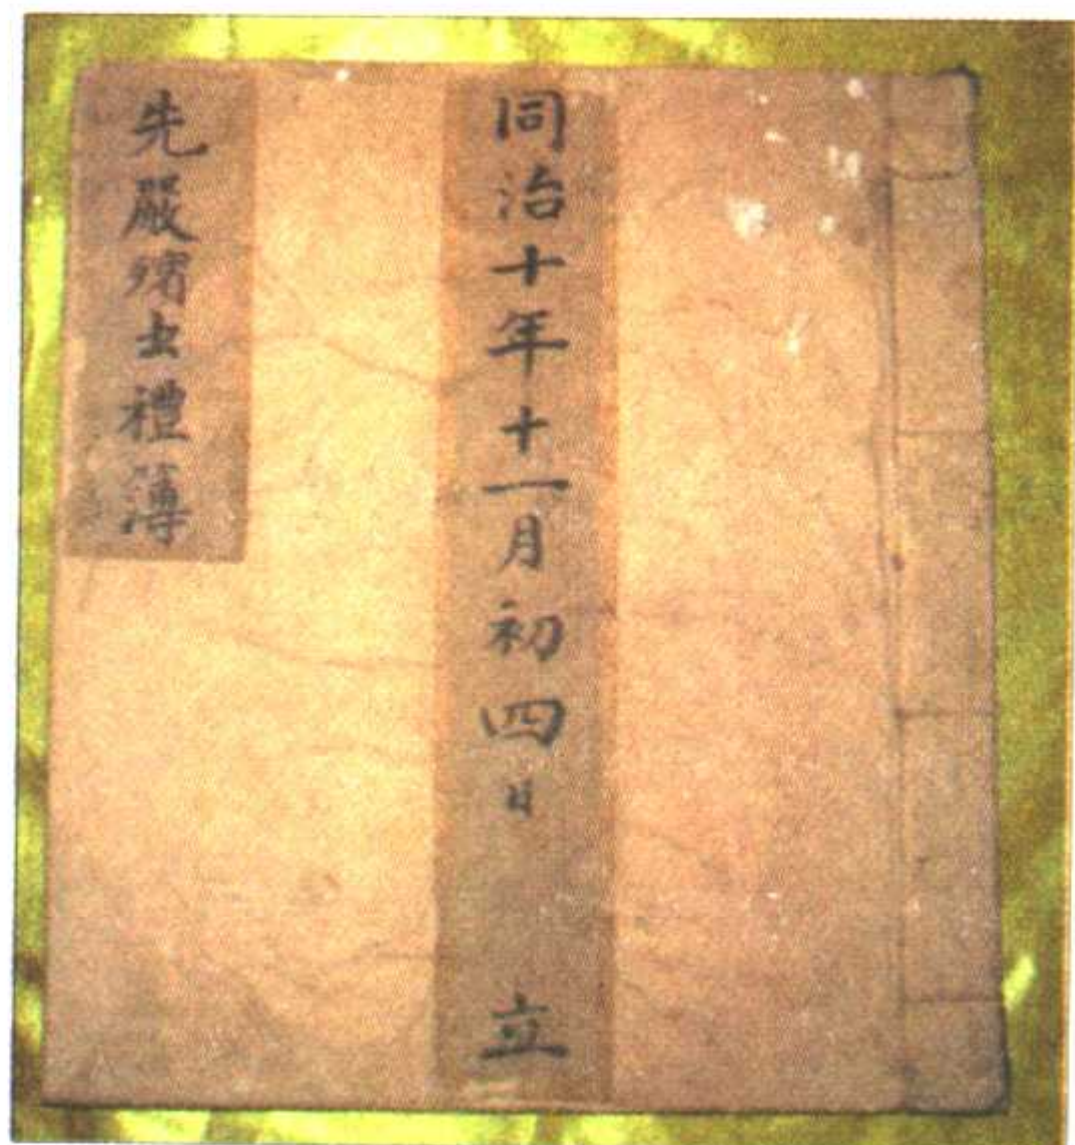 同治十年十一月初四日 立
先嚴殯出禮簿